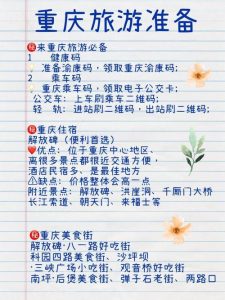 重庆旅游准备
㊙来重庆旅游必备
1 健康码
准备渝康码，领取重庆渝康码；
2 乘车码
重庆乘车码，领取电子公交卡；
公交车：上车刷乘车二维码；
轻 轨：进站刷二维码，出站刷二维码；
㊙重庆住宿
解放碑（便利首选）
优点：位于重庆中心地区、
离很多景点都很近交通方便，
酒店民宿多、是最佳地方
⚠缺点：价格整体会高一点
附近景点：解放碑、洪崖洞、千厮门大桥
长江索道、朝天门、来福士等
㊙重庆美食街
解放碑·八一路好吃街
科园四路美食街、沙坪坝
·三峡广场小吃街、观音桥好吃街
南坪·后堡美食街、弹子石老街、两路口